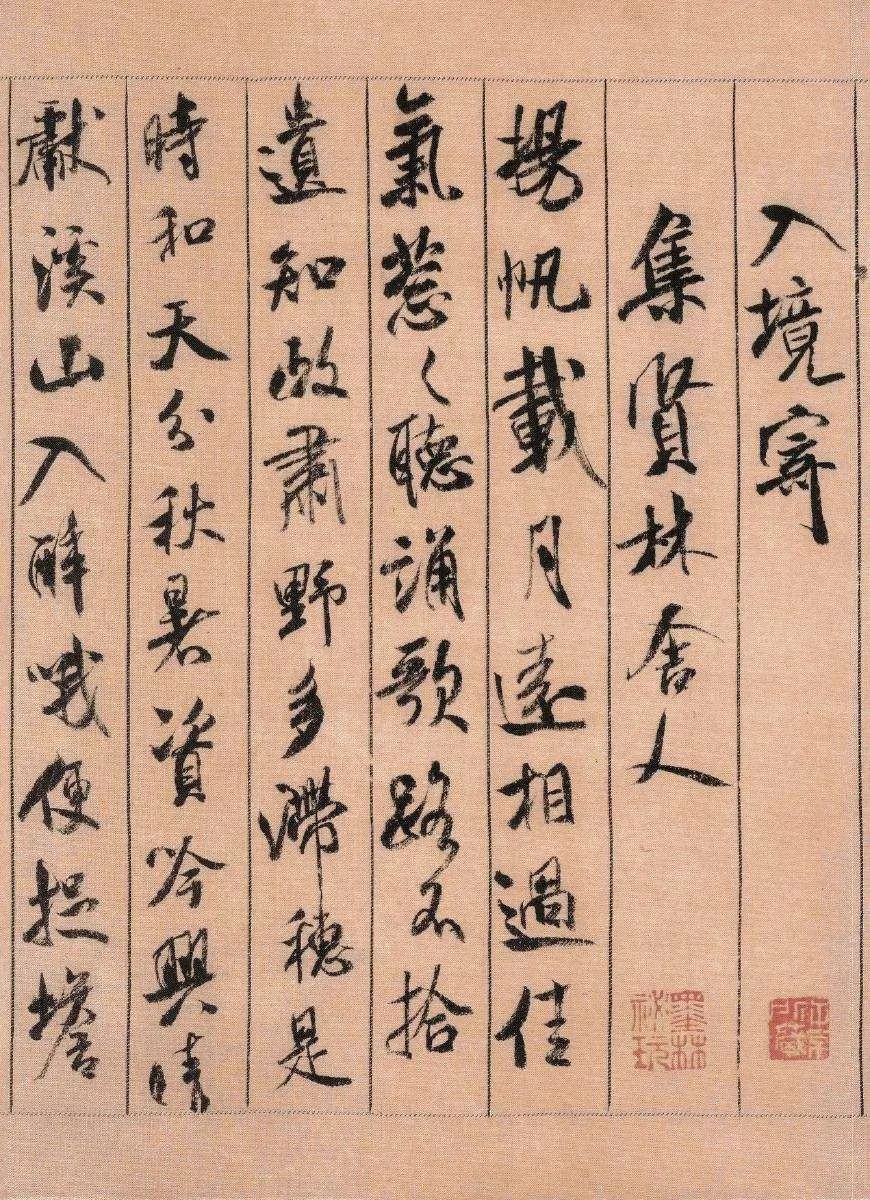 入境寄
集賢林舍人
揚帆載月遠相過佳
氣葱々聽誦歌路不拾
遺知政肅野多滯穗是
時和天分秋暑資吟興晴
獻溪山入醉哦便捉蟾
墨林
祕玩